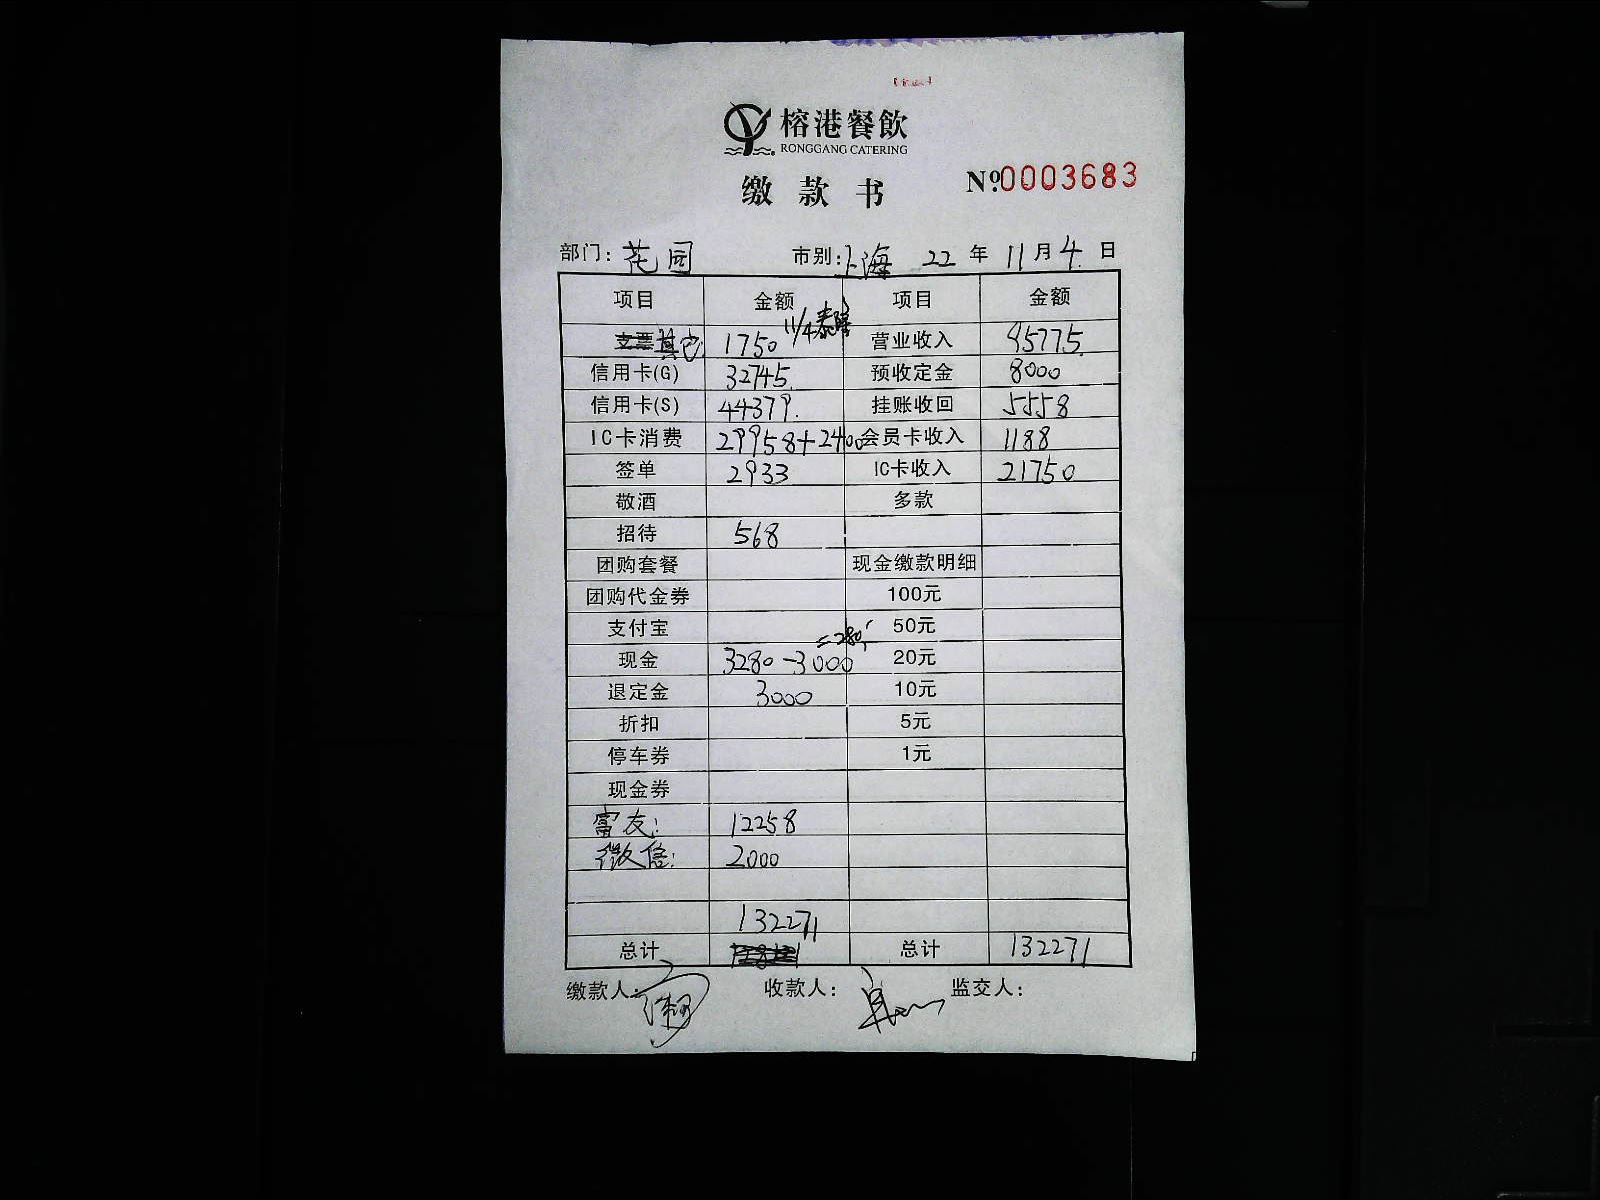 榕港餐飲
RONGGANG CATERING
缴款书 Nº.0003683
部门: 花园 市别: 上海 22 年 11 月 4 日
项目 金额 项目 金额
11/4泰隆
支票其它 1750 营业收入 95775
信用卡(G) 32745 预收定金 8000
信用卡(S) 44379. 挂账收回 5558
IC卡消费 29958+2400 会员卡收入 1188
签单 2933 IC卡收入 21750
敬酒 多款
招待 568
团购套餐 现金缴款明细
团购代金券 100元
支付宝 50元
=280
现金 3280-3000 20元
退定金 3000 10元
折扣 5元
停车券 1元
现金券
富友: 12258
微信: 2000
132271
总计 总计 132271
缴款人: 收款人: 监交人: